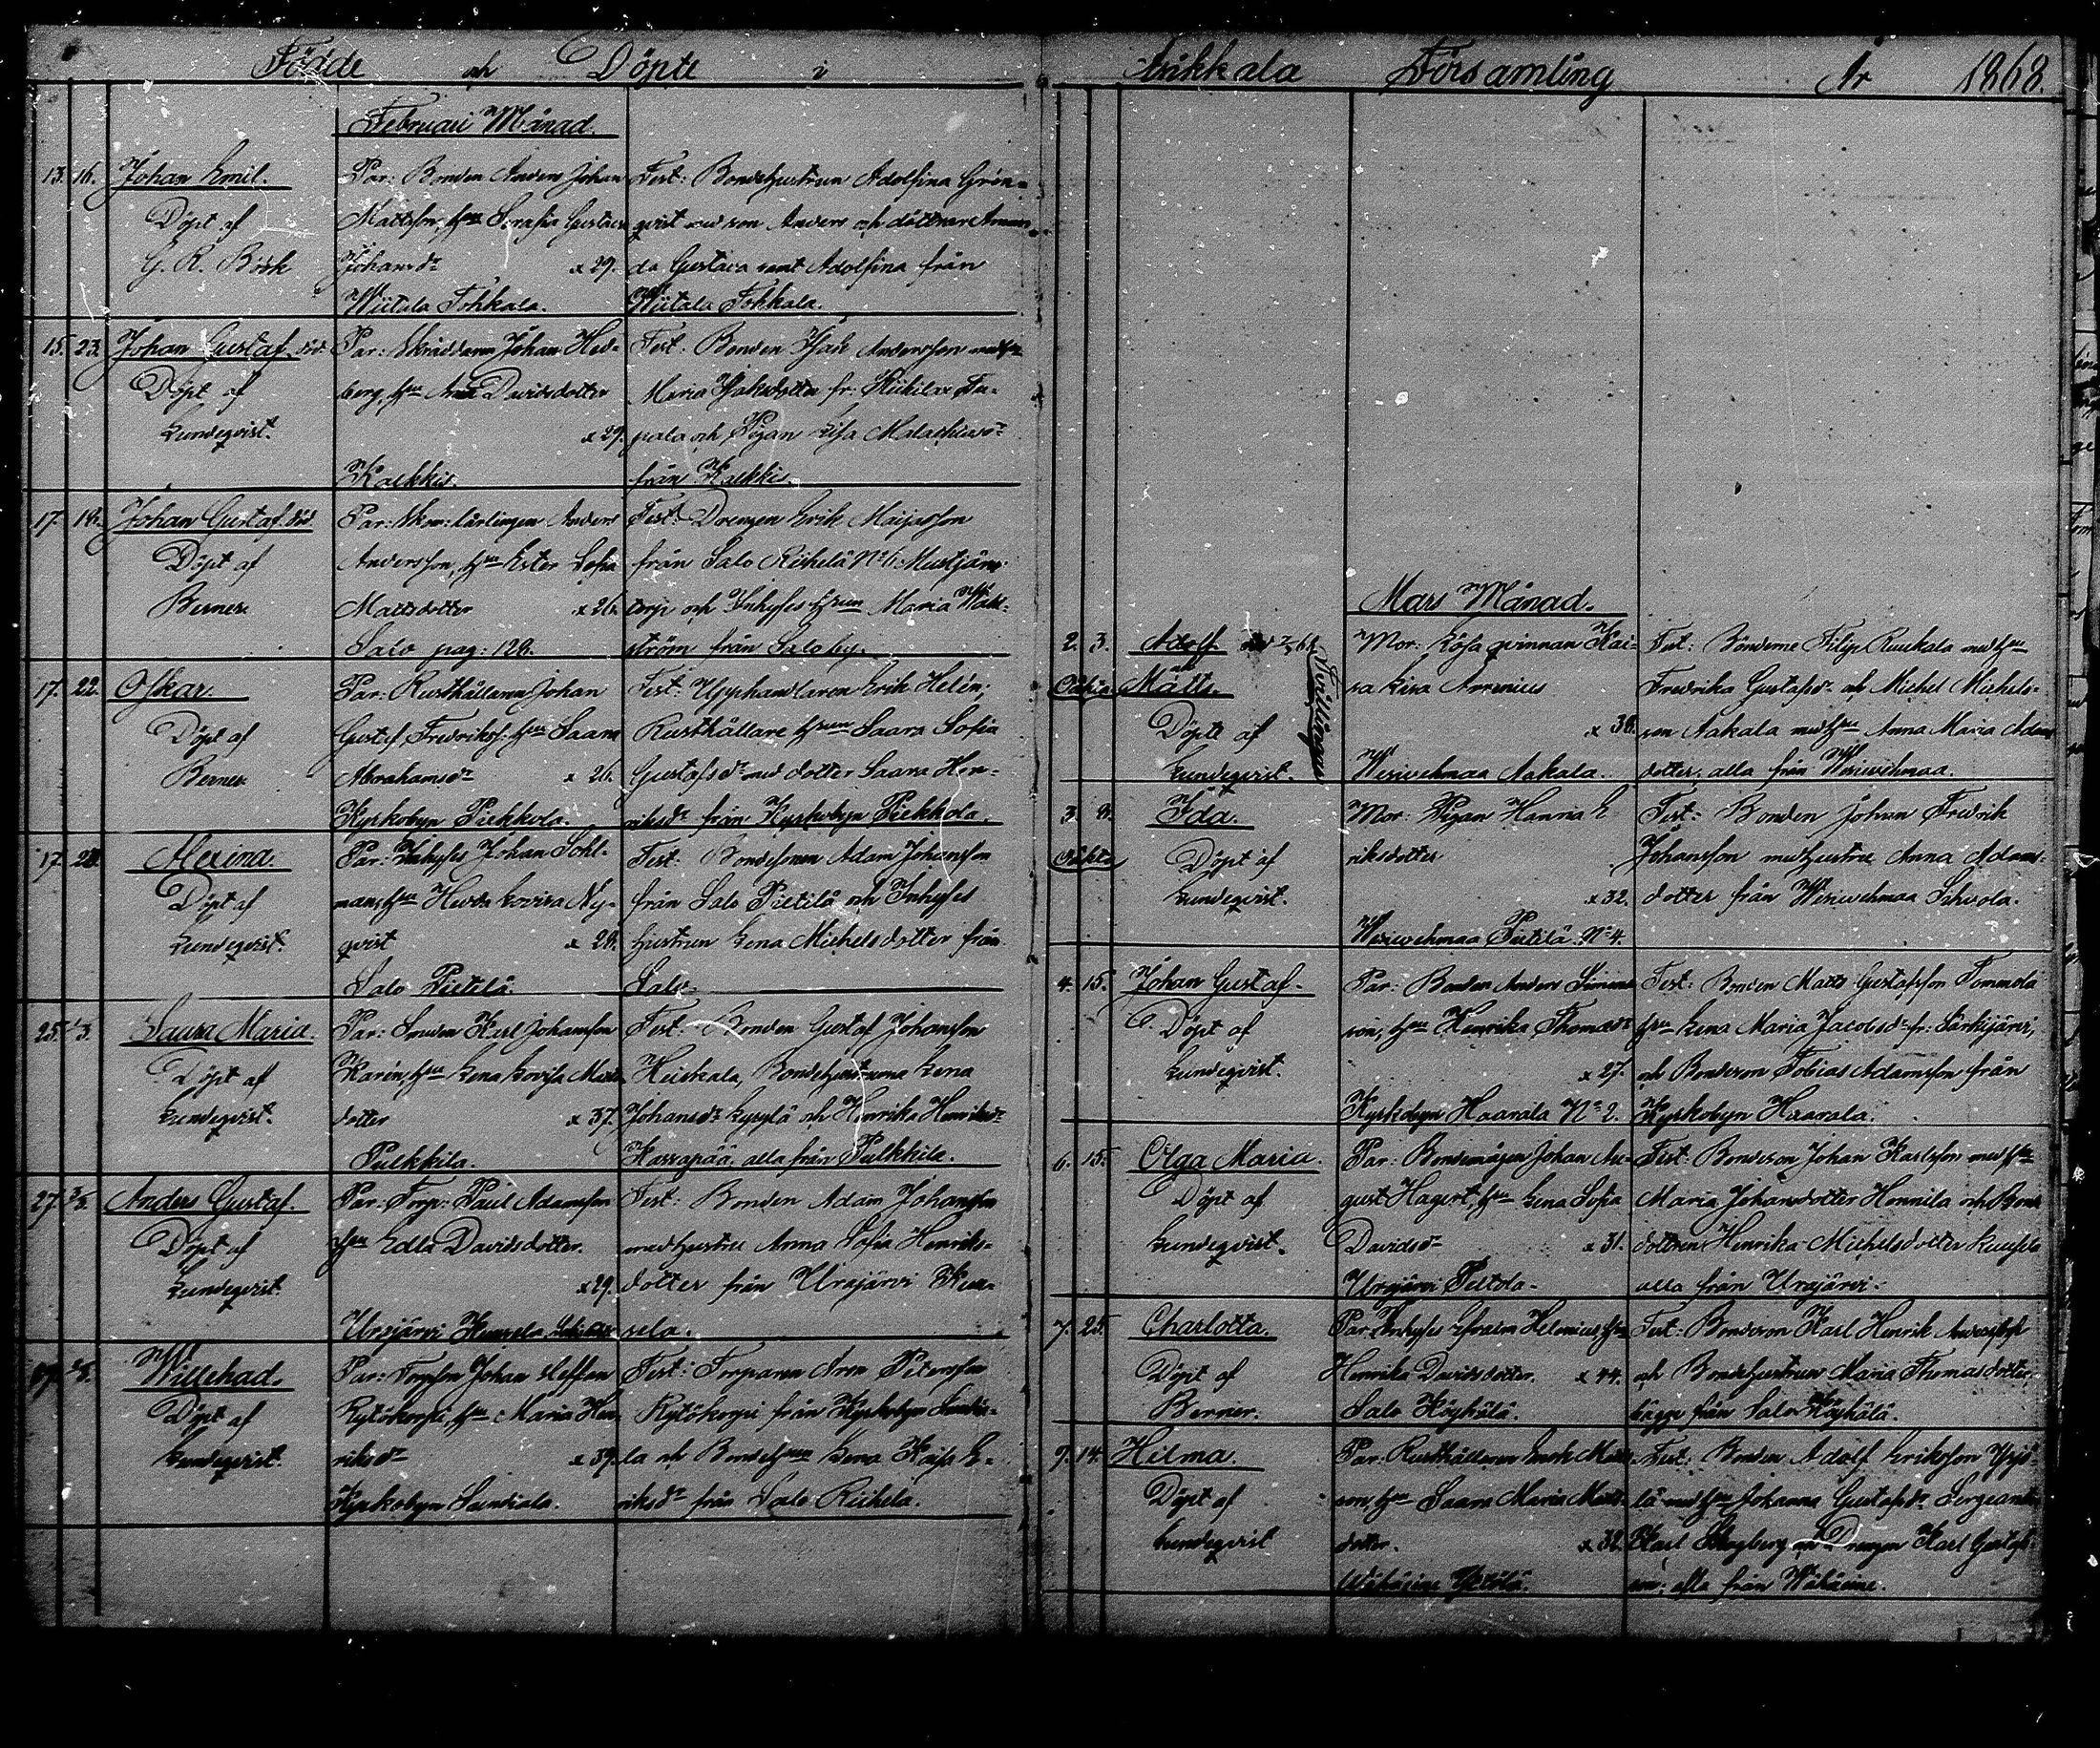 Födde och Döpte i
Februari Månad.
13. 16. Johan Emil.
Döpt af
G. R. Bösk
Par: Bonden Anders Johan
Mattsson, Hu Serafia Gustava
Johansdr x 29.
Wiitala Tohkala.
Test: Bondehustrun Adolfina Grön-
qvist med son Anders och döttrar Aman-
da Gustava samt Adolfina från
Wiitala Tohkala.
15. 23. Johan Gustaf. död.
Döpt af
Lundeqvist.
Par: Skräddaren Johan Hed-
berg, Hu Anna Davidsdotter
x 29.
Kalkkis.
Test: Bonden Isak Andersson med Hu
Maria Isaksdotter fr.
pala och Pigan Lisa Malachiasdr
från Kalkkis.
17. 18. Johan Gustaf. död.
Döpt af
Berner.
Par: Skom: lärlingen Anders
Andersson, Hu Ester Sofia
Mattsdotter x 26.
Salo pag: 128.
Test: Drengen Erik Maijasson
från Salo Riihelä No 6: Mustjärvi
torp och Inhyses Hustrun Maria Wäst-
ström från Salo by.
17. 22. Oskar.
Döpt af
Berner
Par: Rusthållaren Johan
Gustaf Fredriks: Hu Saara
Abrahamsdr x 26.
Kyrkobyn Piekkola.
Test: Upphandlaren Erik Helén,
Rusthållare Hustrun Saara Sofia
Gustafsdr med dotter Saara Hen-
riksdr från Kyrkobyn Piekkola.
17. 28. Alexina.
Döpt af
Lundeqvist.
Par: Inhyses Johan Sohl-
man, Hu Hedda Lovisa Ny-
qvist x 28.
Salo Pietilä.
Test: Bondesonen Adam Johansson
från Salo Pietilä och Inhyses
hustrun Lena Michelsdotter från
Salo.
25. 1/3. Saara Maria.
Döpt af
Lundeqvist.
Par: Smeden Karl Johansson
Karén, Hu Lena Lovisa Matts-
dotter x 37.
Pulkkila.
Test: Bonden Gustaf Johansson
Heiskala, Bondehustruna Lena
Johansdr Kyrylä och Henrika Henriksdr
Harrapää, alla från Pulkkila.
27. 3/3. Anders Gustaf.
Döpt af
Lundeqvist.
Par: Torp: Paul Adamsson
Hu Edla Davidsdotter.
x 29.
Urajärvi Huusela
Test: Bonden Adam Johansson
med hustru Anna Sofia Henriks-
dotter från Urajärvi Huu-
sela.
Willehad.
Döpt af
Lundeqvist.
Par: Torp:son Johan Steffan
Rytökorpi, Hu Maria Hen-
riksdr x 39.
Kyrkobyn Sundiala.
Test: Torparen Aron Petersson
Rytökorpi från Kyrkobyn Sundia-
la och Bondehustrun Lena Kaisa E-
riksdr från Salo Riihela.
Asikkala Församling År 1868.
Mars Månad.
2. 3. Adolf.
och
Oäkta Matts.
Tvillingar
Döpte af
Lundeqvist.
Mor: Lösa qvinnan Kai-
sa Lisa Arrenius
x 38.
Wesivehmaa Aakala.
Test: Bönderne Filip Ruukala med Hu
Fredrika Gustafsdr och Michel Michels-
son Aakala med Hu Anna Maria Adams
dotter, alla från Wesivehmaa.
3 8. Ida.
Oäkta Döpt af
Lundeqvist.
Mor: Pigan Hanna E-
riksdotter
x 32.
Wesivehmaa Pietilä No 4.
Test: Bonden Johan Fredrik
Johansson med hustru Anna Adams-
dotter från Wesivehmaa Sihvola.
4. 15. Johan Gustaf.
Döpt af
Lundeqvist.
Par: Bonden Anders Simons
son, Hu Henrika Thomasdr
x 27.
Kyrkobyn Haarala No 2.
Test: Bonden Matts Gustafsson Tommola
Hu Lena Maria Jacobsdr fr: Särkijärvi,
och Bondeson Tobias Adamsson från
Kyrkobyn Haarala.
6. 15. Olga Maria.
Döpt af
Lundeqvist.
Par: Bondemågen Johan Au-
gust Hagert, Hu Lena Sofia
Davidsdr x 31.
Urajärvi Peltola.
Test: Bondeson Johan Karlsson med Hu
Maria Johansdotter Hennila och Bonde
dottren Henrika Michelsdotter
alla från Urajärvi.
7. 25. Charlotta.
Döpt af
Berner.
Par: Inhyses Efraim Helenius, Hu
Henrika Davidsdotter. x 44.
Salo Köykälä.
Test: Bondeson Karl Henrik Andersson
och Bondehustrun Maria Thomasdotter,
bägge från Salo Köykälä.
9. 14. Hilma.
Döpt af
Lundeqvist
Par: Rusthållaren Enok Matts-
son, Hu Saara Maria Matts
dotter. x 32.
Wähäsine Yrjölä.
Test: Bonden Adolf Eriksson Yrjö-
lä med Hu Johanna Gustafsdr Sergeanten
Karl Skogberg och Drengen Karl Gustafs-
son; alla från Wähäsine.